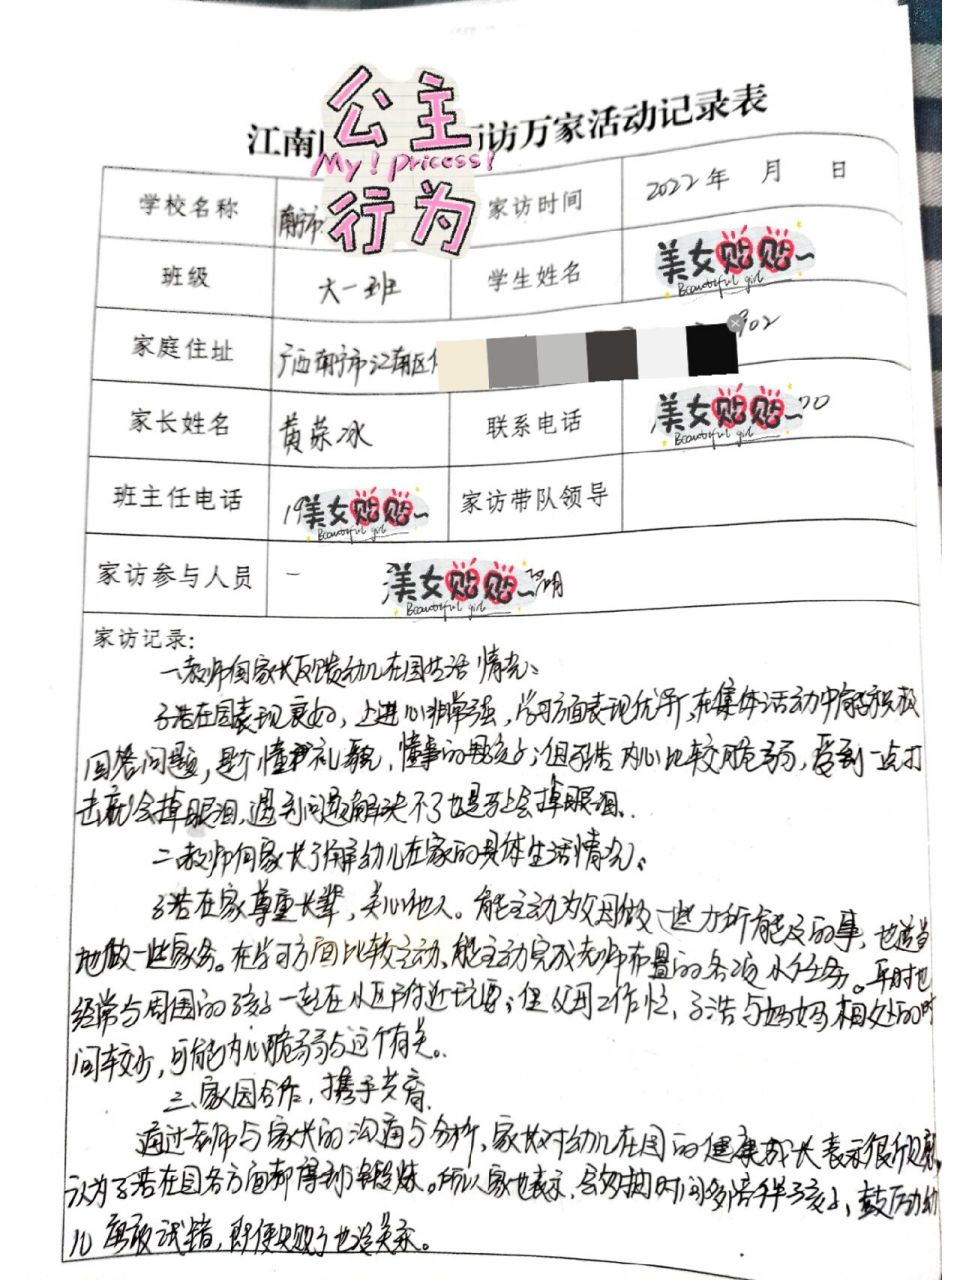 江南 访万家活动记录表
公主
My! pricess!
行为
学校名称 南宁市 家访时间 2022年 月 日
班级 大一班 学生姓名 美女贴贴~
Beautiful girl
家庭住址 广西南宁市江南区 902
家长姓名 黄荣冰 联系电话 美女贴贴~ 00
Beautiful girl
班主任电话 19 美女贴贴~ 家访带队领导
Beautiful girl
家访参与人员 美女贴贴~
Beautiful girl
家访记录:
一、教师向家长反馈幼儿在园生活情况。
子浩在园表现良好,上进心非常强,学习方面表现优异,在集体活动中能积极
回答问题,是个懂礼貌,懂事的男孩子;但子浩内心比较脆弱,受到一点打
击就会掉眼泪,遇到问题解决不了也是马上会掉眼泪。
二、教师向家长了解幼儿在家的具体生活情况。
子浩在家尊重长辈,关心他人。能主动为父母做一些力所能及的事,也适当
地做一些家务。在学习方面比较主动、能主动完成老师布置的各项小任务。平时也
经常与周围的孩子一起在小区附近玩耍;但父母工作忙,子浩与妈妈相处的时
间较少,可能内心脆弱与这个有关。
三、家园合作,携手共育
通过老师与家长的沟通与分析,家长对幼儿在园的健康成长表示很欣慰,
认为子浩在园各方面都得到锻炼。所以家长也表示,会多抽时间多陪伴孩子,鼓励幼
儿勇敢试错,即便失败了也没关系。